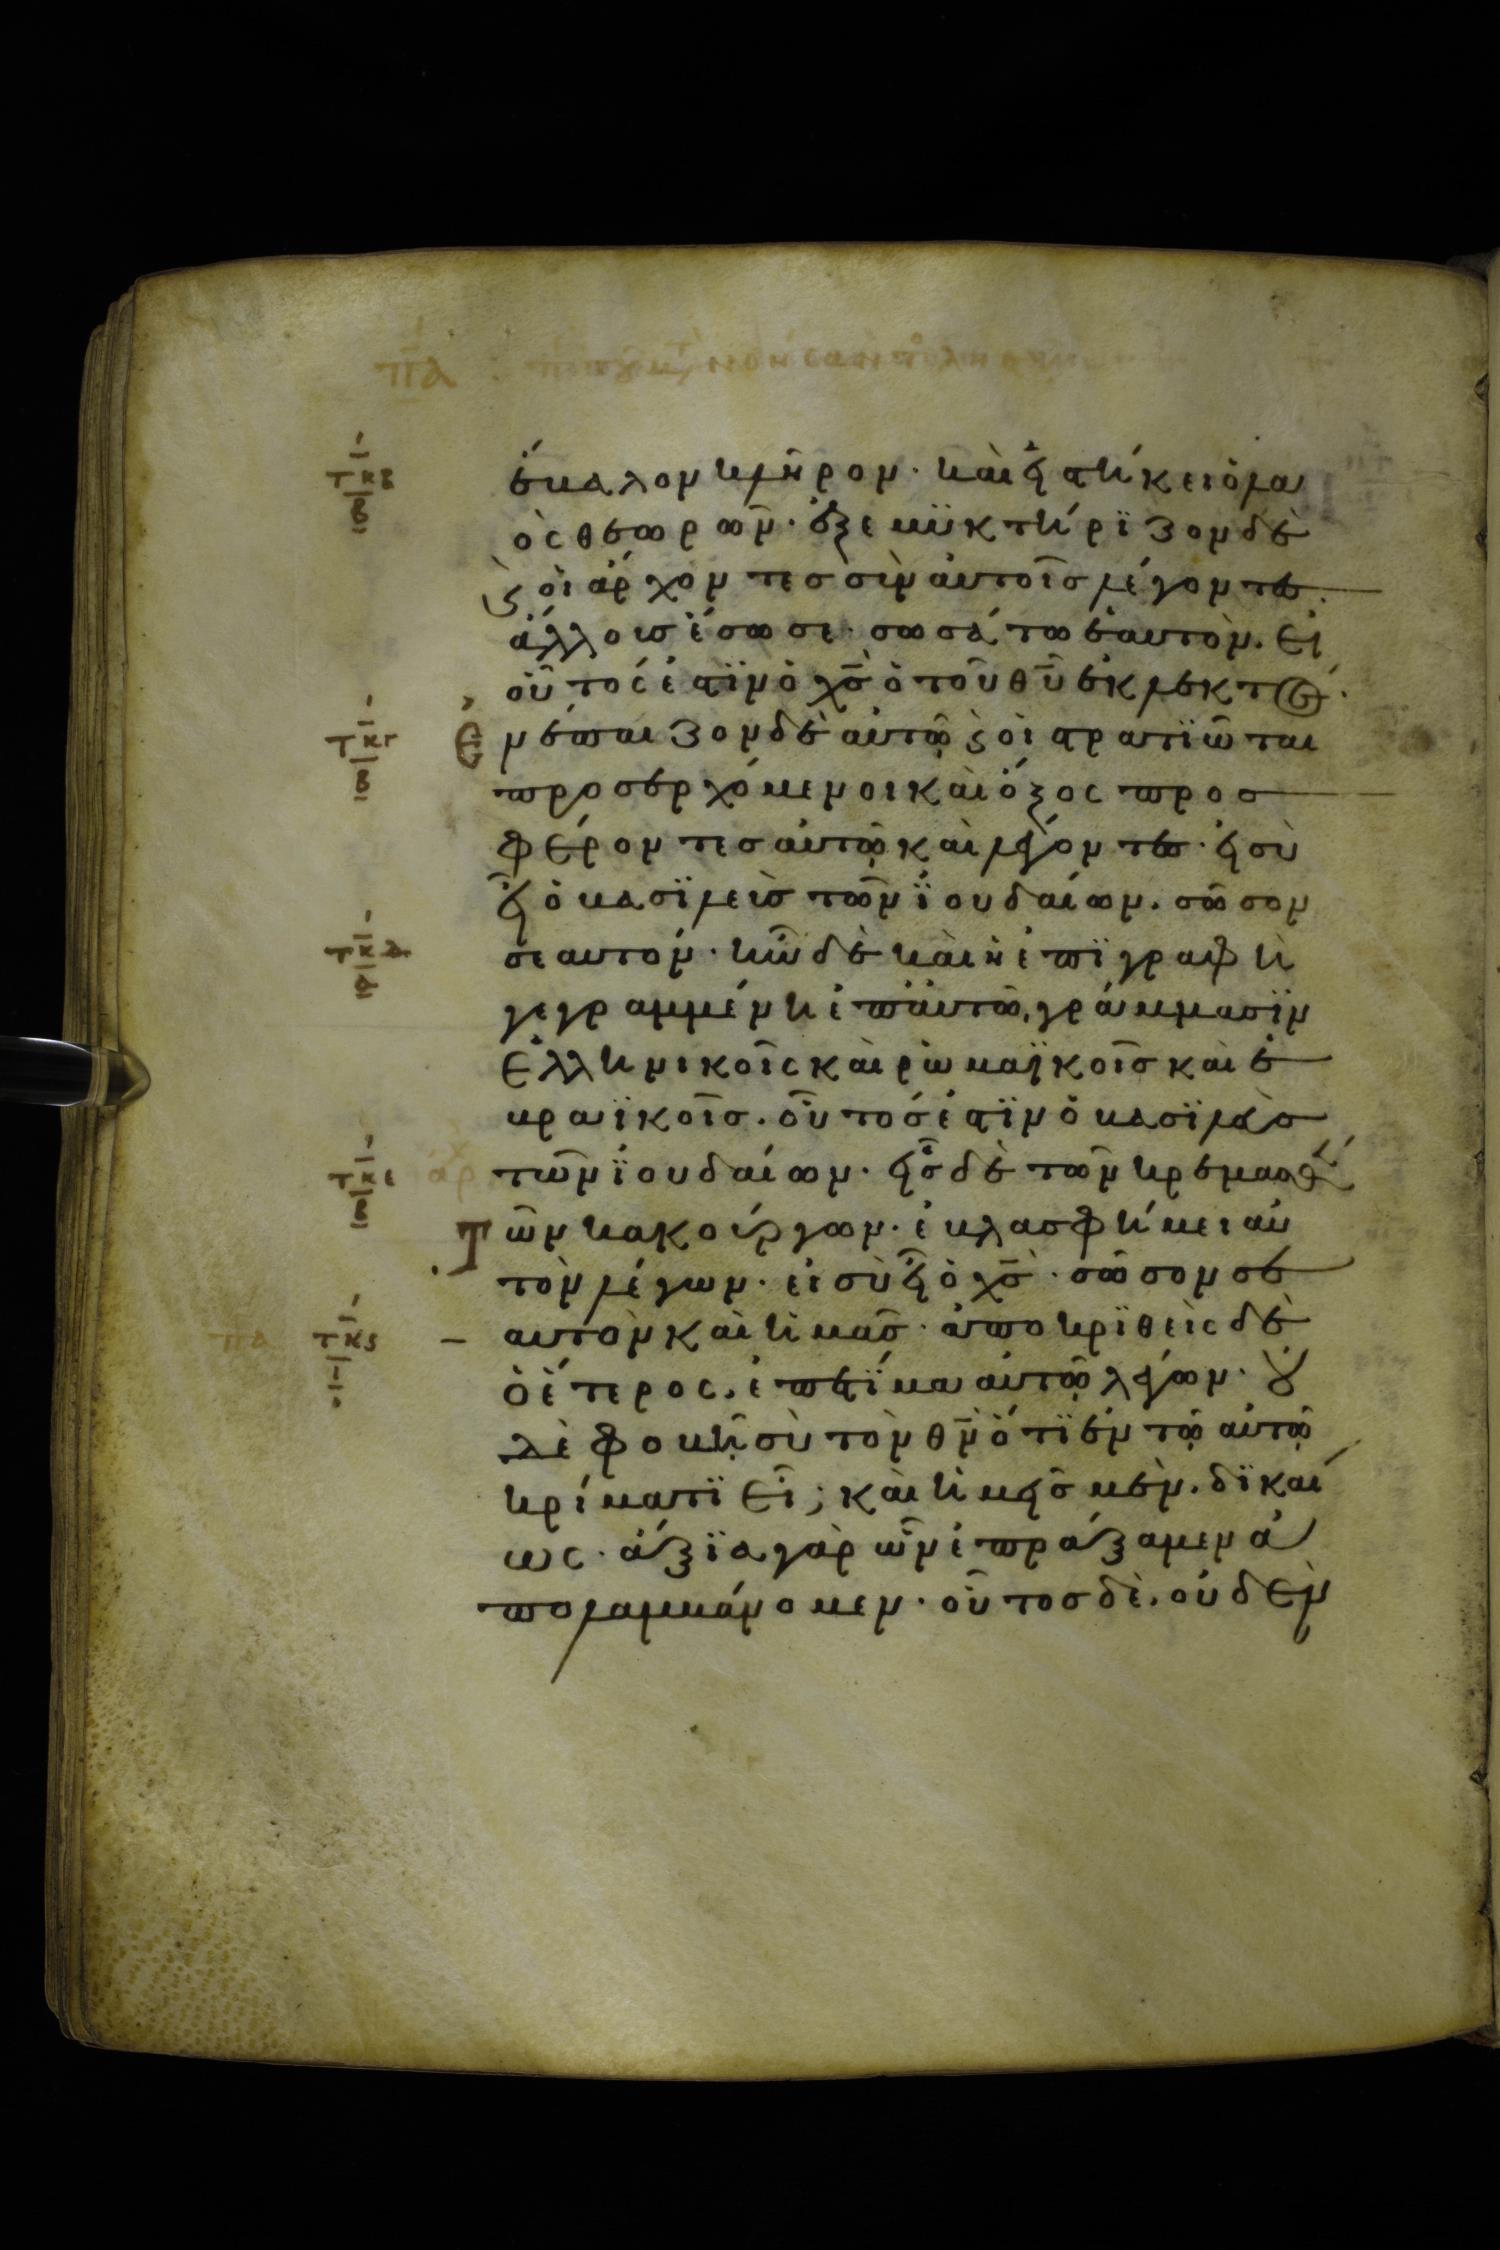 πα
τκβ
β
ἔβαλον κλῆρον· καὶ εἱστήκει ὁ λα
ὸς θεωρῶν· ἐξεμϋκτήριζον δὲ
ϗ οἱ ἄρχοντες σὺν αὐτοῖς λέγοντες·
ἄλλους ἔσωσε· σωσάτω ἑαυτὸν. εἰ
οὗτός ἐστϊν ὁ χς ὁ τοῦ θυ ἐκλεκτός·
τκγ
β
Ἐνέπαιζον δὲ αὐτῷ ϗ οἱ στρατϊῶται
προσερχόμενοι καὶ ὄξος προσ
φέροντες αὐτῷ καὶ λέγοντες· εἰ σὺ
εἶ ὁ βασϊλεὺς τῶν ϊουδαίων. σῶσον
τκδ
σεαυτόν· ἦν δὲ καὶ ἡ ἐπϊγραφὴ
γεγραμμένη ἐπ αὐτῶ, γράμμασϊν
ἑλληνικοῖς καὶ ρωμαϊκοῖς καὶ ἑ
βραϊκοῖς. οὗτός ἐστϊν ὁ βασϊλεὺς
τκε
β
τῶν ϊουδαίων. εἷς δὲ τῶν κρεμασθέν
Τῶν κακούργων. ἐβλασφήμει αὐ
τὸν λέγων. εἰ σὺ εἶ ὁ χς· σῶσον σε
πα
τκς
ι
αυτὸν καὶ ἡμᾶς· ἀποκρϊθεὶς δὲ
ὁ ἕτερος. ἐπετϊμα αὐτῷ λέγων· οὐ
δὲ φοβῇ σὺ τὸν θν ὅτϊ ἐν τῷ αὐτῷ
κρίματϊ εἶ; καὶ ἡμεῖς μὲν. δϊκαί
ως· ἄξϊα γὰρ ὧν ἐπράξαμεν ἀ
πολαμβάνομεν· οὗτος δὲ. οὐδὲν